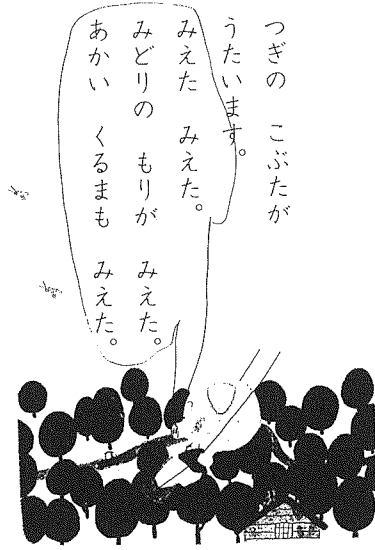 つぎの　こぶたが
うたいます。
みえた　みえた。
みどりの　もりが　みえた。
あかい　くるまも　みえた。